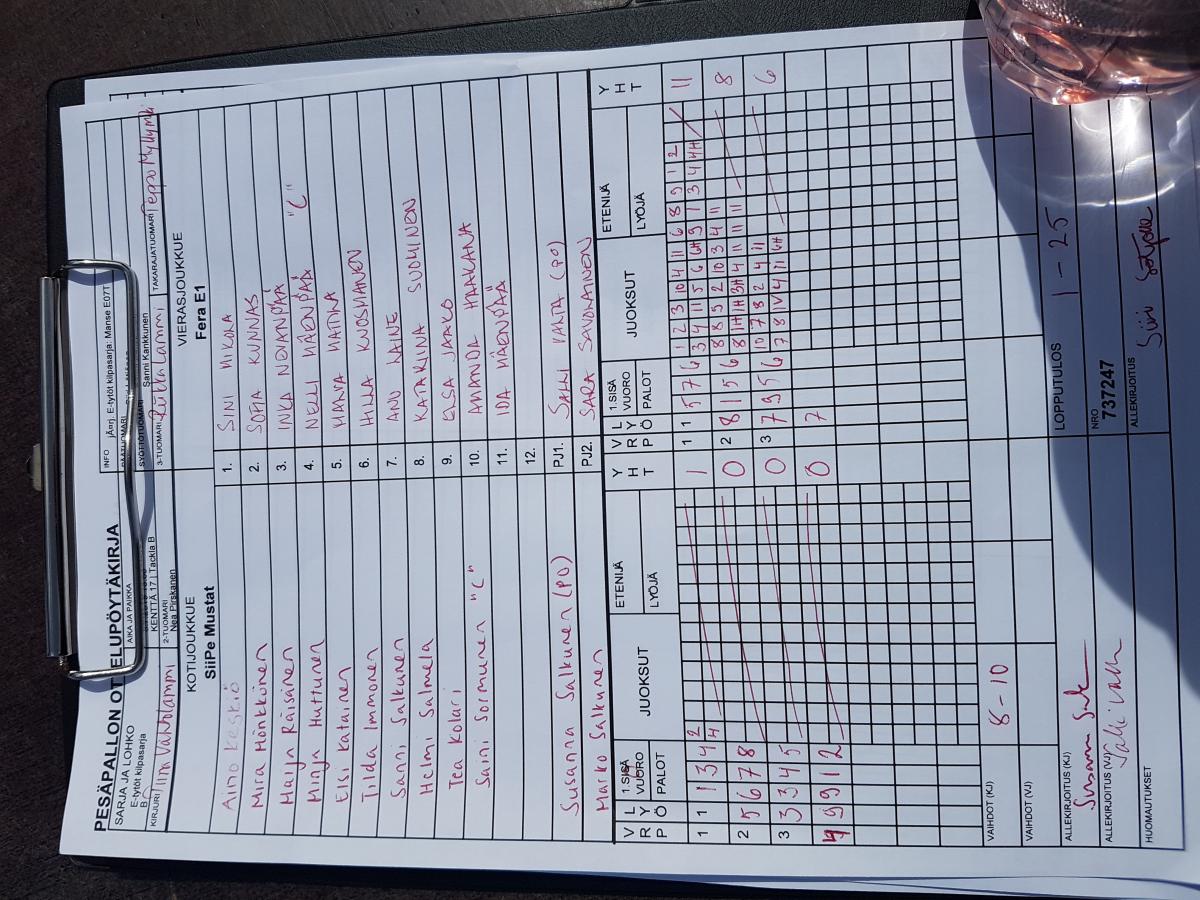 PESÄPALLON OTTELUPÖYTÄKIRJA
INFO jÄrrj. E-tytöt kilpasarja: Manse E07T
SARJA JA LOHKO
E-tytöt kilpasarja
B
AIKA JA PAIKKA
KENTTÄ 17 | Tackla B
SYÖTTÖTUOMARI Sanni Kankkunen
KIRJURI
2-TUOMARI Nea Pirskanen
3-TUOMARI Riikka Lammi
TAKARAJATUOMARI Teppo Myllymäki
KOTIJOUKKUE
SiiPe Mustat
VIERASJOUKKUE
Fera E1
Aino Keskiö 1. SINI MIKOLA
Mira Hörkkönen 2. SOFIA KUNNAS
Maija Räisänen 3. INKA NEVANPÄÄ
Minja Huttunen 4. NELLI MÄENPÄÄ "C"
Elsi Katainen 5.
Tilda Immonen 6. HILLA KUOSMANEN
Sanni Salkunen 7. ANU LAINE
Helmi Salmela 8. KATARIINA SUOMINEN
Tea Kolari 9. ELSA JAAKO
Saini Sormunen "C" 10. AMANDA MAAKANA
11. IDA MÄENPÄÄ
12.
Susanna Salkunen (PO) PJ1. SALLI VARTA (PO)
Marko Salkunen PJ2. SARA SAVOLAINEN
VRP LYÖ 1.SISÄ VUORO PALOT JUOKSUT ETENIJÄ LYÖJÄ YHT VRP LYÖ 1.SISÄ VUORO PALOT JUOKSUT ETENIJÄ LYÖJÄ YHT
1 1 1 3 4 2 1 1 1 5 7 6 1 2 3 10 4 11 6 8 9 1 2 11
4 3 4 11 5 6 6H 9 1 3 4 4H
2 5 6 7 8 0 2 8 1 5 6 8 8 5 2 10 3 4 11 8
8 1H 1H 3H 4 11 11 11
3 3 3 4 5 0 3 7 9 5 6 10 7 8 2 4 11 6
7 8 1V 4 11 6H
4 9 9 1 2 0 7
VAIHDOT (KJ) 8 - 10
VAIHDOT (VJ)
LOPPUTULOS 1 - 25
ALLEKIRJOITUS (KJ)
NRO
737247
ALLEKIRJOITUS (VJ)
ALLEKIRJOITUS
HUOMAUTUKSET